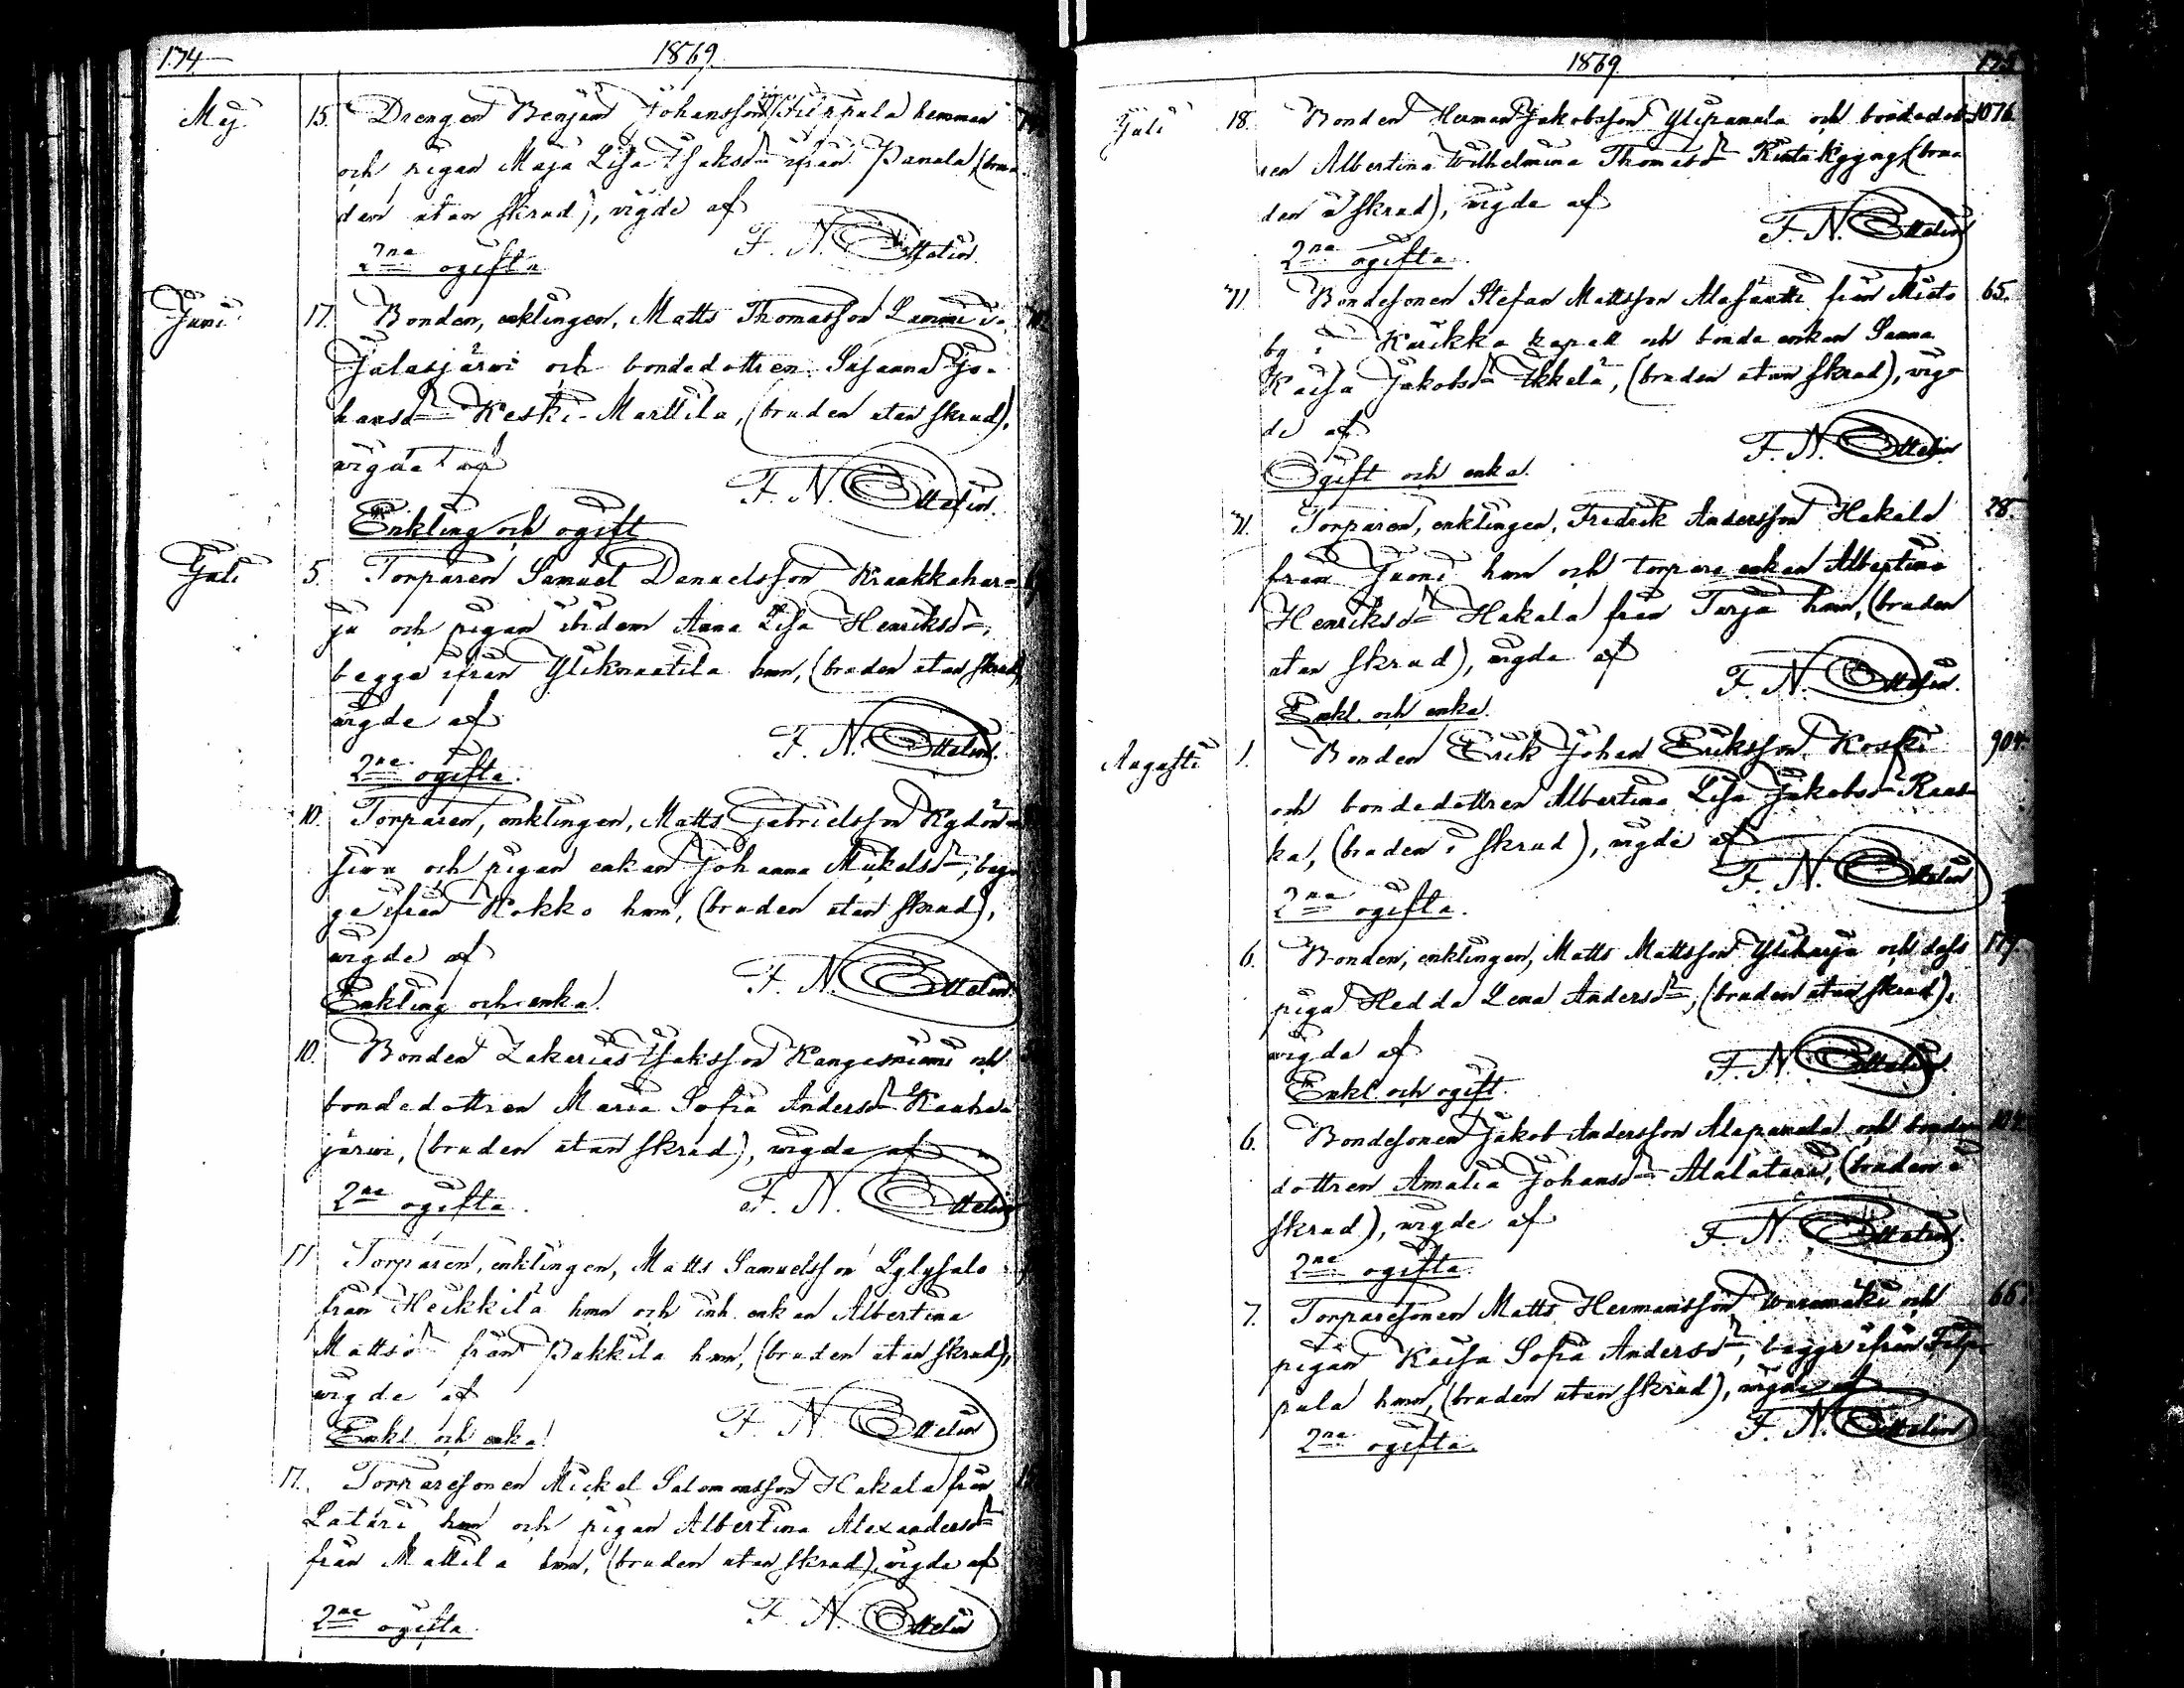 174
1869
Maj 15. Drengen Benjam Johansson från Filppula hemman
och pigan Maja Lisa Isaksdr ifrån Panula (bru-
den utan skrud), vigde af
F. N. Ottelin.
2ne ogifta
Juni 17. Bonden, enklingen, Matts Thomasson Lammi i
Jalasjärvi och bondedottren Susanna Jo-
hansdr Keski-Marttila, (bruden utan skrud),
vigde af
F. N. Ottelin.
Enkling och ogift
Juli 5. Torparen Samuel Danielsson Kraakkahar-
ju och pigan ibidem Anna Lisa Henriksdr,
begge ifrån Yliknuutila hmn, (bruden utan skrud)
vigde af
F. N. Ottelin.
2ne ogifta.
10. Torparen, enklingen, Matts Gabrielsson
och pigan enkan Johanna Mickelsdr, beg-
ge ifrån Kokko hmn, (bruden utan skrud),
vigde af
F. N. Ottelin.
Enkling och enka.
10. Bonden Zakarias Isaksson Kangasniemi och
bondedottren Maria Sofia Andersdr Kauha-
järvi, (bruden utan skrud), vigde af
F. N. Ottelin
2ne ogifta.
11 Torparen, enklingen, Matts Samuelsson Lylysalo
från Heikkilä hmn och inh. enkan Albertina
Mattsdr från Pukkila hmn, (bruden utan skrud),
vigde af
F. N. Ottelin
Enkl. och enka.
17. Torparesonen Mickel Salomonsson Hakala från
Latari hmn och pigan Albertina Alexandersdr
från Mattila hmn, (bruden utan skrud), vigde af
F. N. Ottelin
2ne ogifta.
1869.
175
Juli 18. Bonden Herman Jakobsson Ylipanula och bondedott- 1076.
ren Albertina Wilhelmina Thomasdr Rinta (bru-
den i skrud), vigde af
F. N. Ottelin
2ne ogifta.
Bondesonen Stefan Mattsson från Mieto 65.
by i Kurikka kapell och bonde enkan Sanna
Kaisa Jakobsdr Ikkelä, (bruden utan skrud), vig-
de af
F. N. Ottelin.
Ogift och enka.
Torparen, enklingen, Fredrik Andersson Hakala 28.
från Juoni hmn och torpare enkan Albertina
Henriksdr Hakala från Tarja hmn, (bruden
utan skrud), vigde af
F. N. Ottelin.
Enkl. och enka.
Augusti 1. Bonden Erik Johan Eriksson Koski 904.
och bondedottren Albertina Lisa Jakobsdr Raus-
ka, (bruden i skrud), vigde af
F. N. Ottelin
2ne ogifta.
6. Bonden, enklingen, Matts Mattsson Yliharja och dess 177.
piga Hedda Lena Andersdr, (bruden utan skrud),
vigde af
F. N. Ottelin.
Enkl. och ogift.
6. Bondesonen Jakob Andersson Alapanula och bonde-
dottren Amalia Johansdr Alalatari, (bruden i
skrud), vigde af
F. N. Ottelin.
2ne ogifta.
7. Torparesonen Matts Hermansson Waramäki och 66.
pigan Kaisa Sofia Andersdr, begge ifrån Filp-
pula hmn, (bruden utan skrud), vigde af
F. N. Ottelin
2ne ogifta.